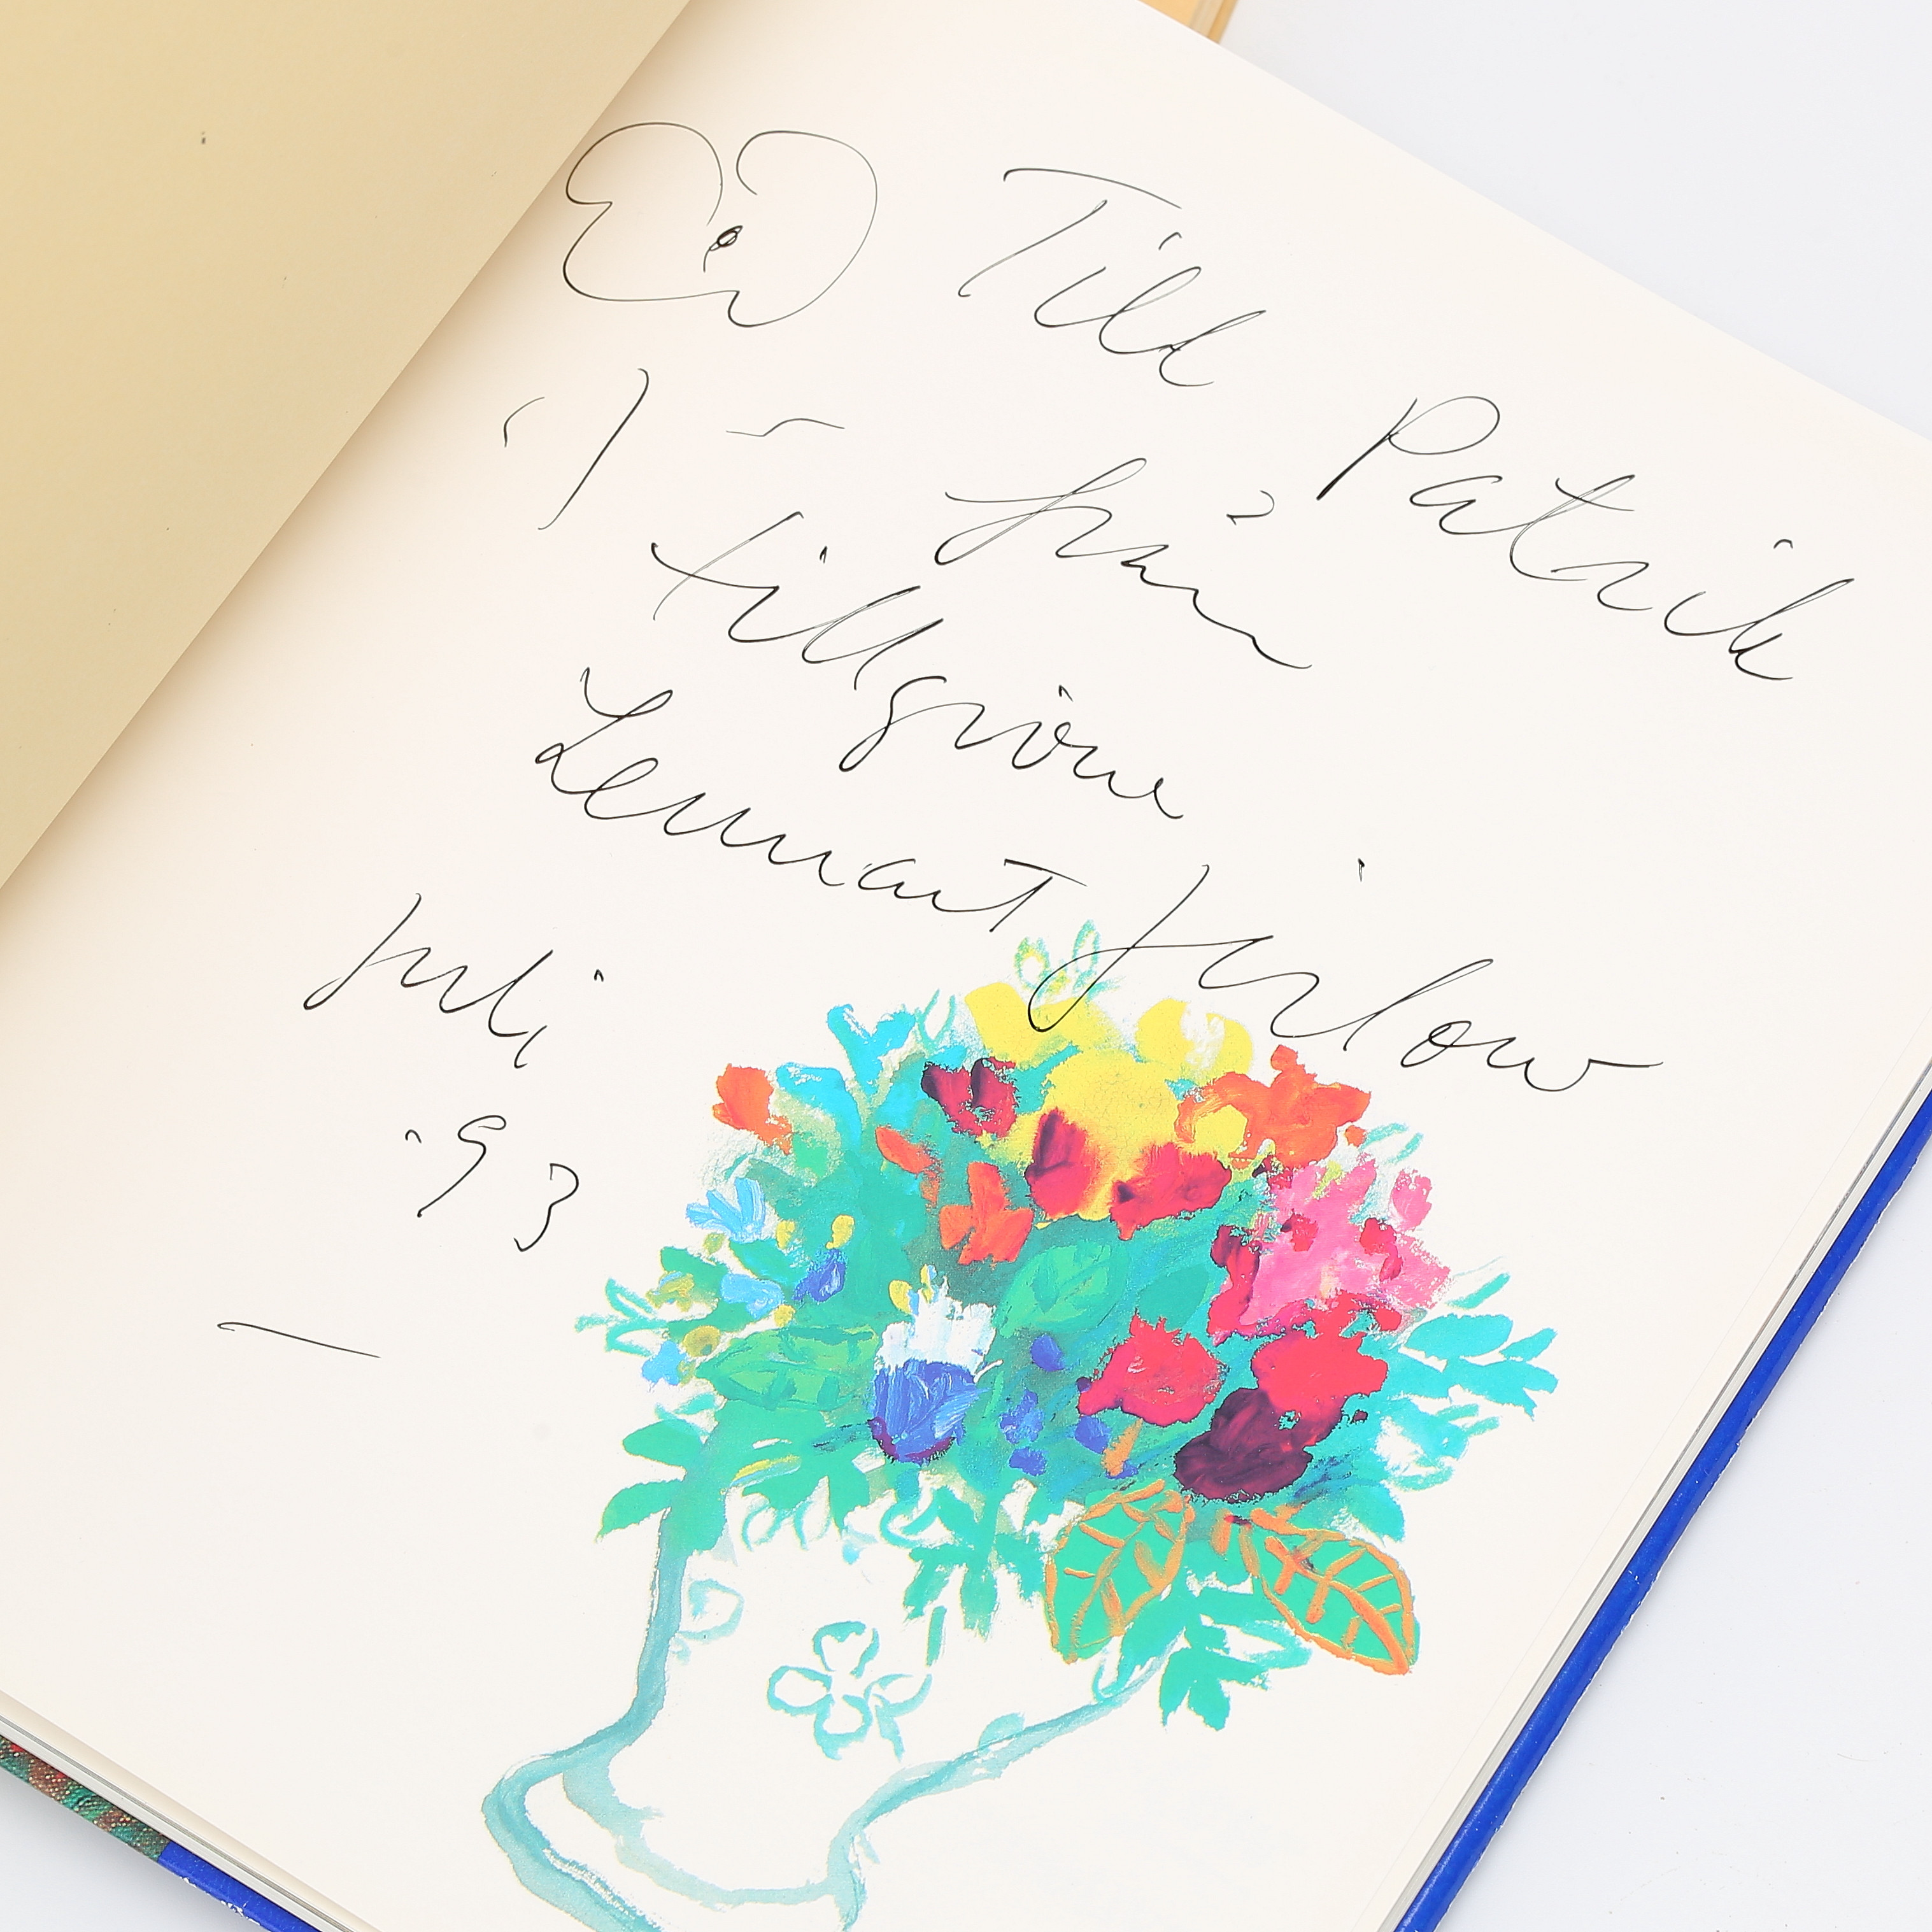 Till Patrik
från
tillgivne
Lennart Jirlow
Juli
'93